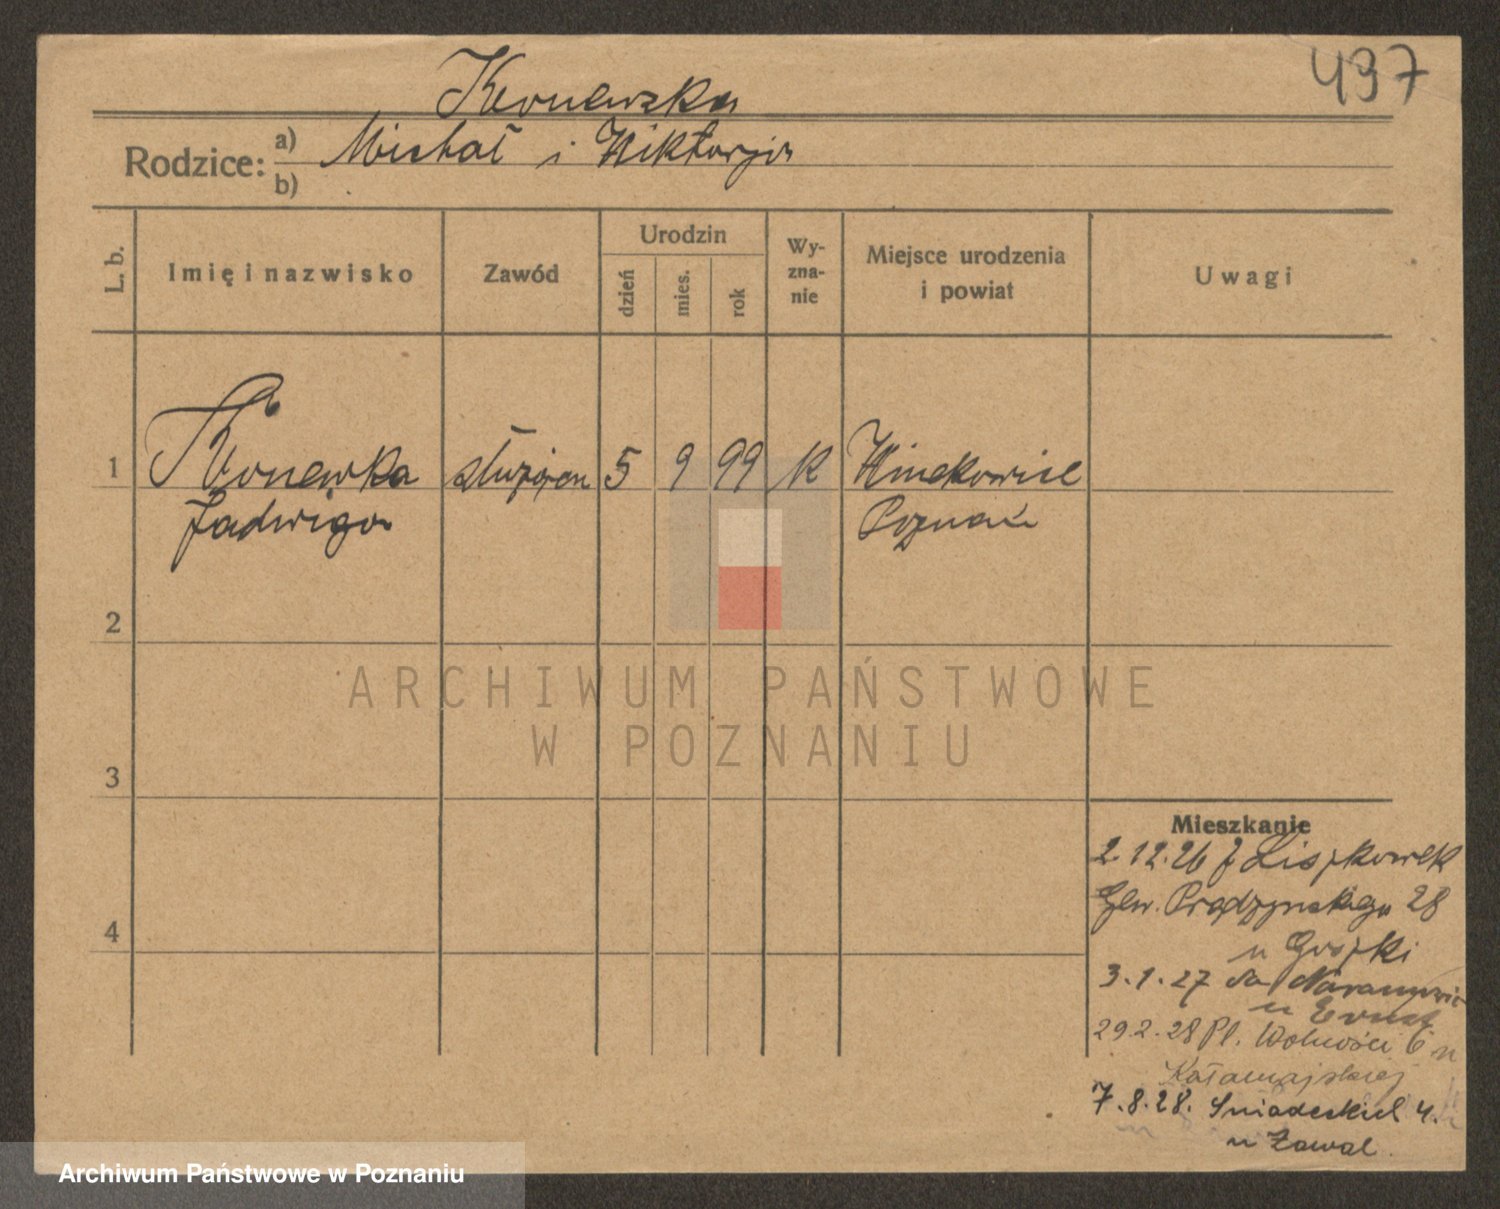 497
Konewska
Rodzice: a) Michał i Wiktorja
b)
L. b.
Imię i nazwisko
Zawód
Urodzin
dzień
mies.
rok
Wy-
zna-
nie
Miejsce urodzenia
i powiat
Uwagi
1 Konewka służąca 5 9 99 K
Jadwiga Poznań
2
3
4
ARCHIWUM PAŃSTWOWE
W POZNANIU
Mieszkanie
2.12.26 z Liszkówek
Gen. Prądzyńskiego 28
u Grojki
3.1.27
u Ernst
29.2.28 Pl. Wolności 6 u
7.8.28. Śniadeckich 4.
u Zawal.
Archiwum Państwowe w Poznaniu